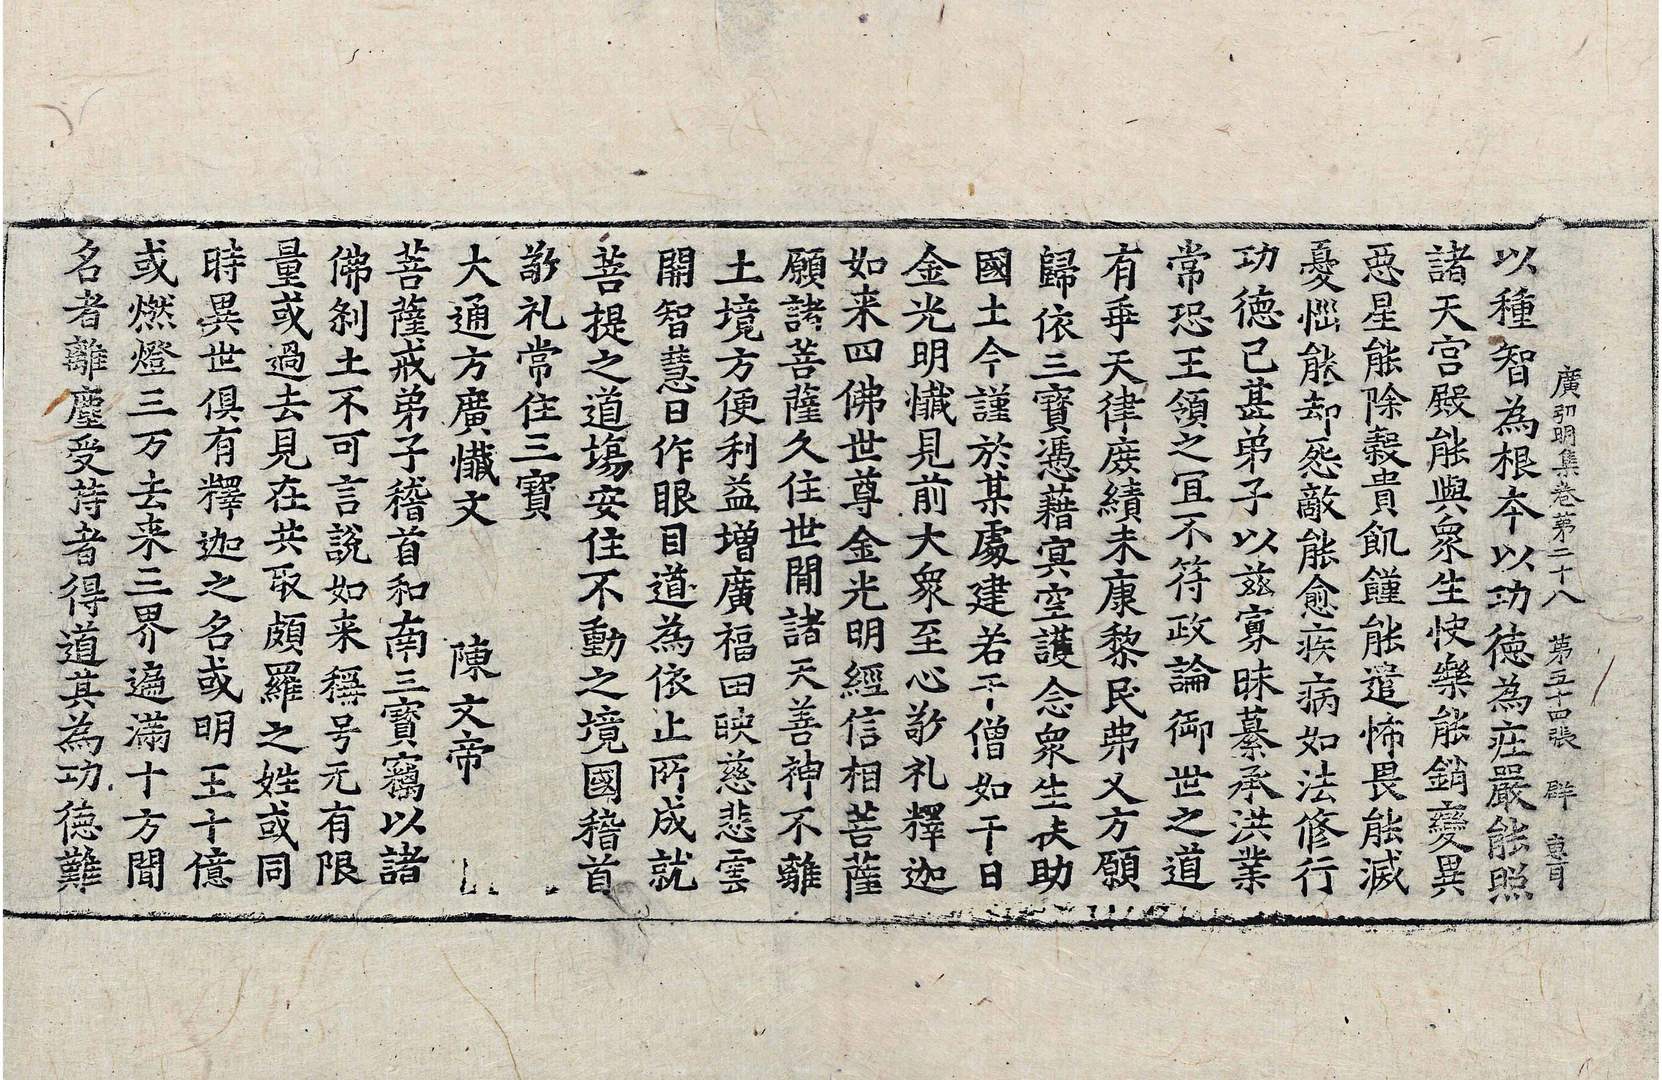 廣弘明集卷第二十八 第五十四張 群
以種智為根本以功德為莊嚴能照
諸天宮殿能與衆生快樂能銷變異
惡星能除穀貴飢饉能遣怖畏能滅
憂惱能却怨敵能愈疾病如法修行
功德已甚弟子以兹寡昧纂承洪業
常恐王領之冝不符政論御世之道
有乖天律庻績未康黎民弗乂方願
歸依三寶憑藉㝠空護念衆生扶助
國土今謹於某處建若干僧如干日
金光明懴見前大衆至心敬礼釋迦
如来四佛世尊金光明經信相菩薩
願諸菩薩久住世間諸天善神不離
土境方便利益增廣福田映慈悲雲
開智慧日作眼目道為依止所成就
菩提之道塲安住不動之境國稽首
敬礼常住三寶
大通方廣懴文 陳文帝
菩薩戒弟子稽首和南三寶竊以諸
佛剎土不可言說如来稱号元有限
量或過去見在共取頗羅之姓或同
時異世俱有釋迦之名或明王十億
或燃燈三万去来三界遍滿十方聞
名者離塵受持者得道其為功德難